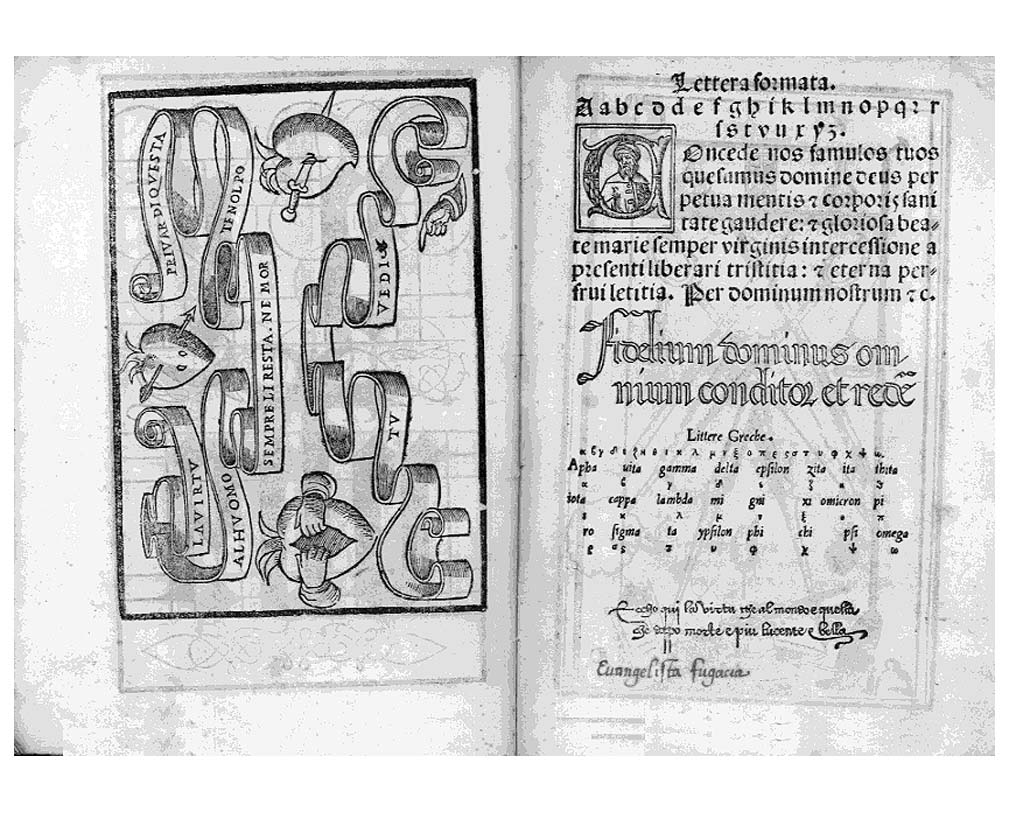 LAVIRTV
ALHVOMO
SEMPRE LI RESTA. NE MOR
TE NOLPO
PRIVAR DI QVESTA
TV
VEDI
Lettera formata.
A a b c d d e f g h i k l m n o p q ꝛ r
ſ s t v u x y ʒ.
COncede nos famulos tuos
queſumus domine deus per
petua mentis ⁊ corporis ſani
tate gaudere: ⁊ glorioſa bea-
te marie ſemper virginis interceſſione a
preſenti liberari triſtitia: ⁊ eterna per-
frui letitia. Per dominum noſtrum ⁊ c.
Fidelium dominus om-
nium conditoꝛ et redē
Littere Greche.
α β γ δ ε ζ η θ ι κ λ μ ν ξ ο π ρ ς σ τ υ φ χ ψ ω.
Alpha uita gamma delta epſilon zita ita thita
α β γ δ ε ζ η θ
iota cappa lambda mi gni xi omicron pi
ι κ λ μ ν ξ ο π
ro ſigma ta ypſilon phi chi pſi omega
ρ σ ς τ υ φ χ ψ ω
Eccho qui la virtu che al mondo e quella
che dopo morte e piu lucente e bella
Euangeliſta fugacia